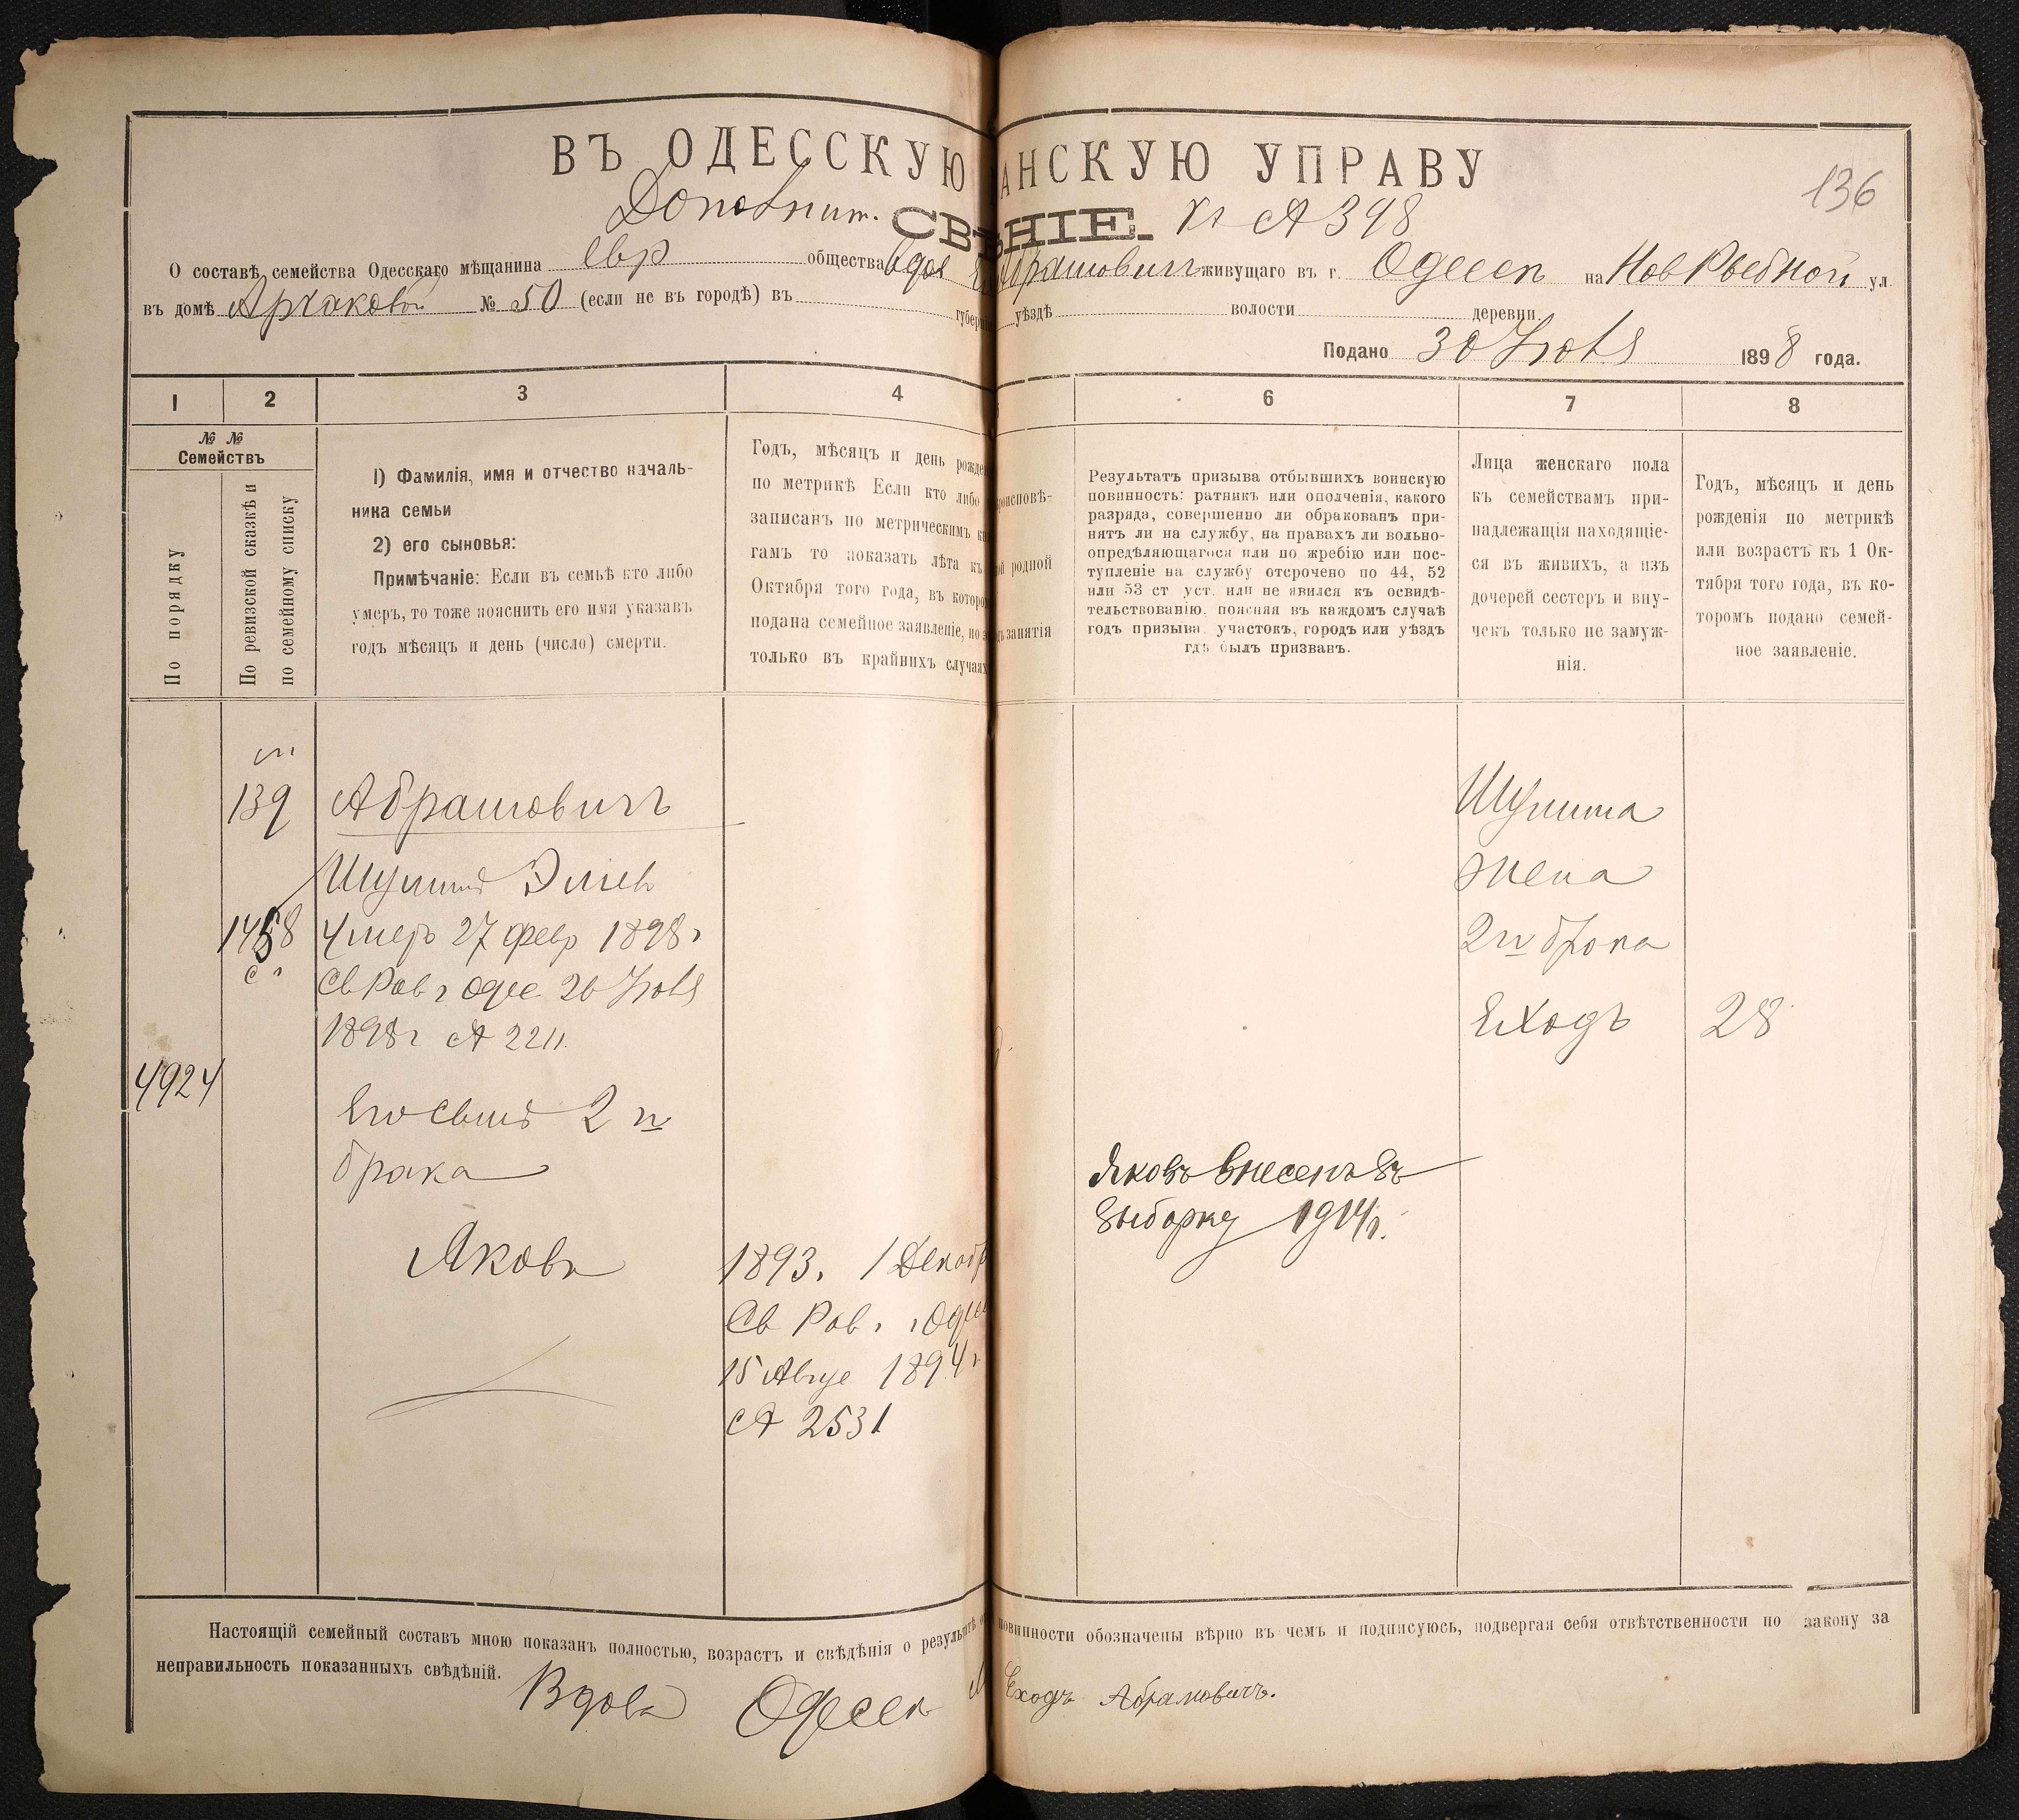 ВЪ ОДЕССКУЮ АНСКУЮ УПРАВУ
136
Дополнит. СВѢ НІЕ. № 398
О составѣ семейства Одесскаго мѣщанина евр общества вдов Абрамовичъ живущаго въ г. Одессѣ на Нов Рыбной ул.
въ домѣ № 50 (если не въ городѣ) въ губерн уѣздѣ волости деревни
Подано 30 Іюля 1898 года.
1 2 3 4 6 7 8
№ № Семействъ
По порядку
По ревизской сказкѣ и
по семейному списку
1) Фамилія, имя и отчество началь-
ника семьи
2) его сыновья:
Примѣчаніе: Если въ семьѣ кто либо
умеръ, то тоже пояснить его имя указавъ
годъ мѣсяцъ и день (число) смерти.
Годъ, мѣсяцъ и день рожде
по метрикѣ Если кто либо
записанъ по метрическимъ кн
гамъ то показать лѣта къ
Октября того года, въ которо
подана семейное заявленіе, но
только въ крайнихъ случаях
роисповѣ-
ой родной
занятія
Результатъ призыва отбывшихъ воинскую
повинность: ратникъ или ополченія, какого
разряда, совершенно ли обракованъ при-
нятъ ли на службу, на правахъ ли вольно-
опредѣляющагося или по жребію или пос-
тупленіе на службу отсрочено по 44, 52
или 53 ст уст. или не явился къ освидѣ-
тельствованію. поясняя въ каждомъ случаѣ
годъ призыва участокъ, городъ или уѣздъ
гдѣ былъ призванъ.
Лица женскаго пола
къ семействамъ при-
надлежащія находящіе-
ся въ живихъ, а изъ
дочерей сестеръ и вну-
чекъ только не замуж-
нія.
Годъ, мѣсяцъ и день
рожденія по метрикѣ
или возрастъ къ 1 Ок-
тября того года, въ ко-
торомъ подано семей-
ное заявленіе.
139 Абрамовичъ
1458 Умеръ 27 февр 1898 г
Св Рав г Одес 26 Іюля
1898 г № 2211
4924
Его сынъ 2 го
брака
Яковъ
1893 г 1 Декабр
Св Рав г Одес
15 Авгус 1894 г
№ 2531
Яковъ внесенъ въ
выборку 1914 г.
жена
2 го брака
Еходъ 28
Настоящій семейный составъ мною показанъ полностью, возрастъ и свѣдѣнія о результатѣ повинности обозначены вѣрно въ чемъ и подписуюсь, подвергая себя отвѣтственности по закону за
неправильность показанныхъ свѣдѣній.
Вдова Одесск Еходъ Абрамовичъ.